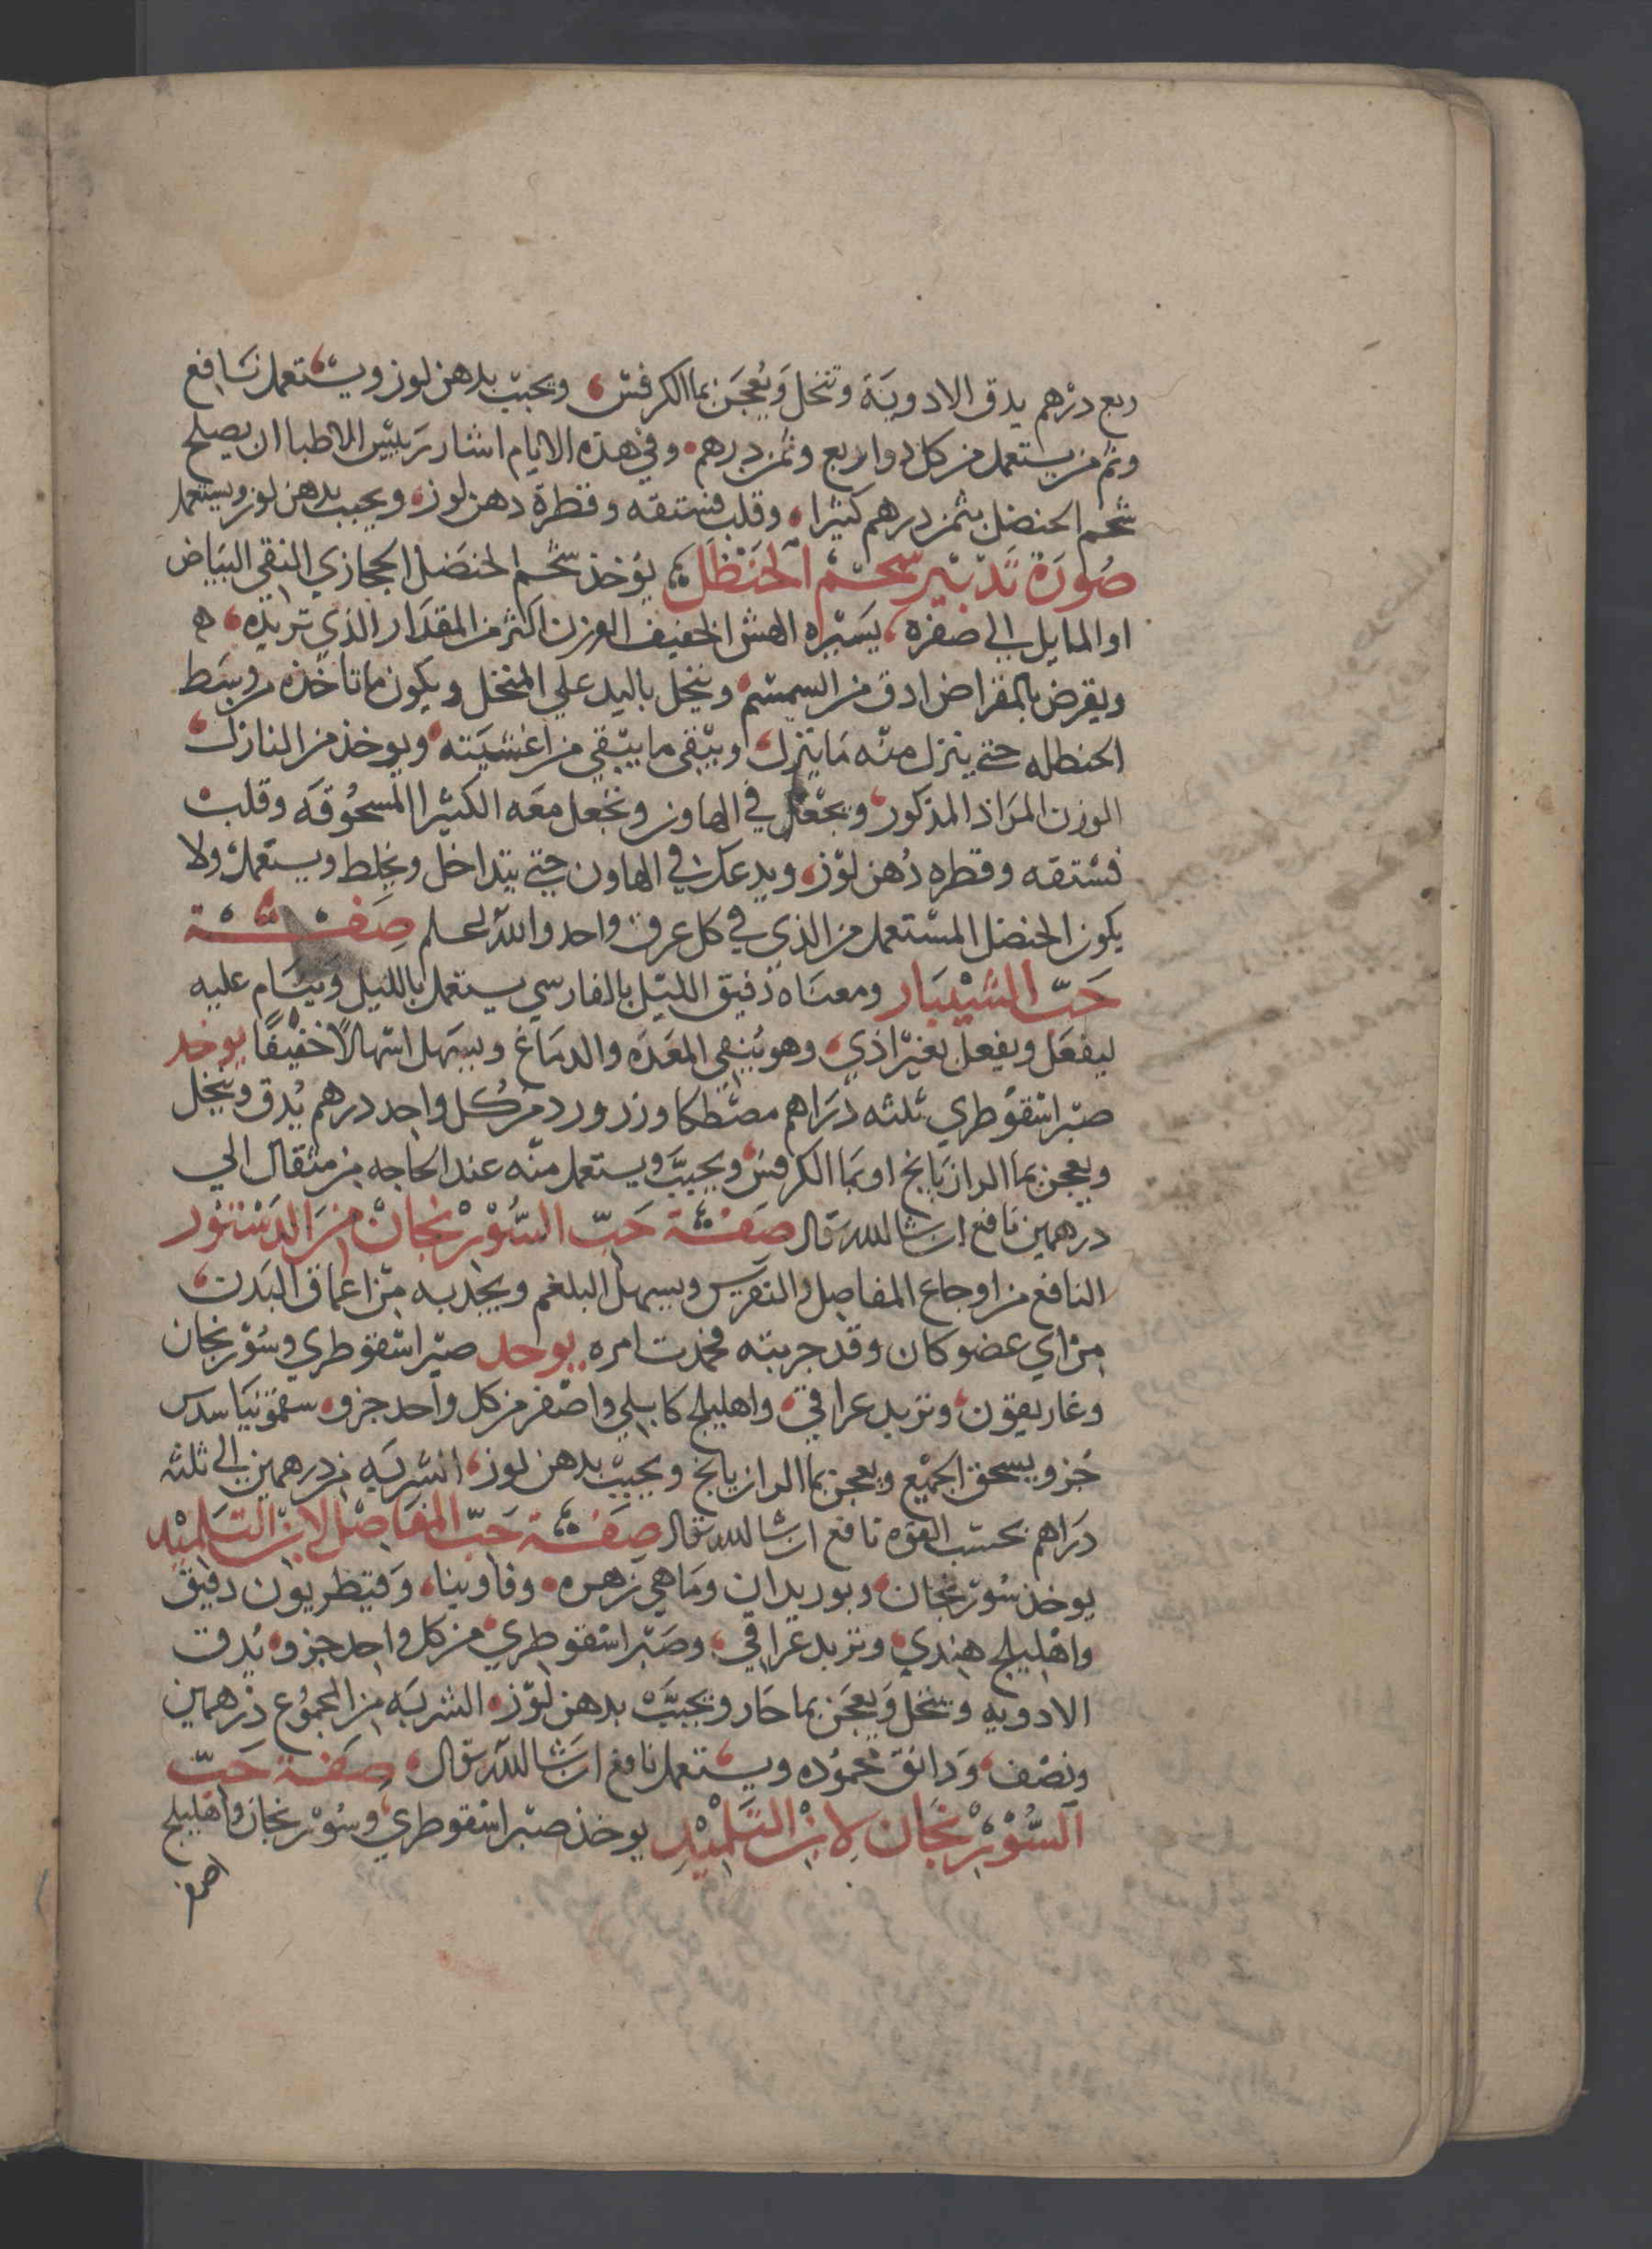 ربع درهم يدق الادوية وتنخل ويعجن بما الكرفس ويحبب بدهن لوز ويستعمل نافع
وثم من يستعمل من كل دوا ربع وثمن درهم وفي هذه الايام اشار رييس الاطبا ان يصلح
شحم الحنضل بثمن درهم كثيرا وقلب فستقه وقطرة دهن لوز ويحبب بدهن لوز ويستعمل
صورة تدبير شحم الحنظل يؤخذ شحم الحنضل الحجازي النقي البياض
او المايل الي صفره يسيره الهش الخفيف الوزن اكثر من المقدار الذي تريده
ويقرض بالمقراض ادق من السمسم وينخل باليد علي المنخل ويكون ما تاخذه من وسط
الحنطله حتي ينزل منه ما ينزل ويبقي ما يبقي من اغشيته ويوخذ من النازل
الوزن المراد المذكور ويجعل في الهاون وتجعل معه الكثيرا المسحوقه وقلب
فستقه وقطره دهن لوز ويدعك في الهاون حتي يتداخل ويخلط ويستعمل ولا
يكون الحنضل المستعمل من الذي في كل عرق واحد والله اعلم صفة
حب الشبيار ومعناه رفيق الليل بالفارسي يستعمل بالليل وينام عليه
ليفعل ويفعل بغير اذي وهو ينقي المعده والدماغ ويسهل اسهالا خفيفا يوخد
صبر اسقوطري ثلثه دراهم مصطكا وزر ورد من كل واحد درهم يدق وينخل
ويعجن بما الرازيانخ او بما الكرفس ويحبب ويستعمل منه عند الحاجه من مثقال الي
درهمين نافع ان شا الله تعالي صفة حب السورنجان من الدستور
النافع من اوجاع المفاصل والنقرس ويسهل البلغم ويجذبه من اعماق البدن
من اي عضو كان وقد جربته فحمدت امره يوحد صبر اسقوطري وسورنجان
وغاريقون وتربد عراقي واهليلج كابلي واصفر من كل واحد جزو سقمونيا سدس
جزو يسحق الجميع ويعجن بما الرازيانخ ويحبب بدهن لوز الشربه من درهمين الي ثلثه
دراهم بحسب القوه نافع ان شا الله تعالي صفة حب المفاصل لابن التلميد
يوخذ سورنجان وبوريدان وماهي زهره وفاوينا وقنطريون دقيق
واهليلج هندي وتربد عراقي وصبر اسقوطري من كل واحد جزو يدق
الادويه وينخل ويعجن بما حار ويحبب بدهن لوز الشربه من المجموع درهمين
ونصف ودانق محموده ويستعمل نافع ان شا الله تعالي صفة حب
السورنجان لابن التلميد يوخذ صبر اسقوطري وسورنجان واهليلج
اصفر